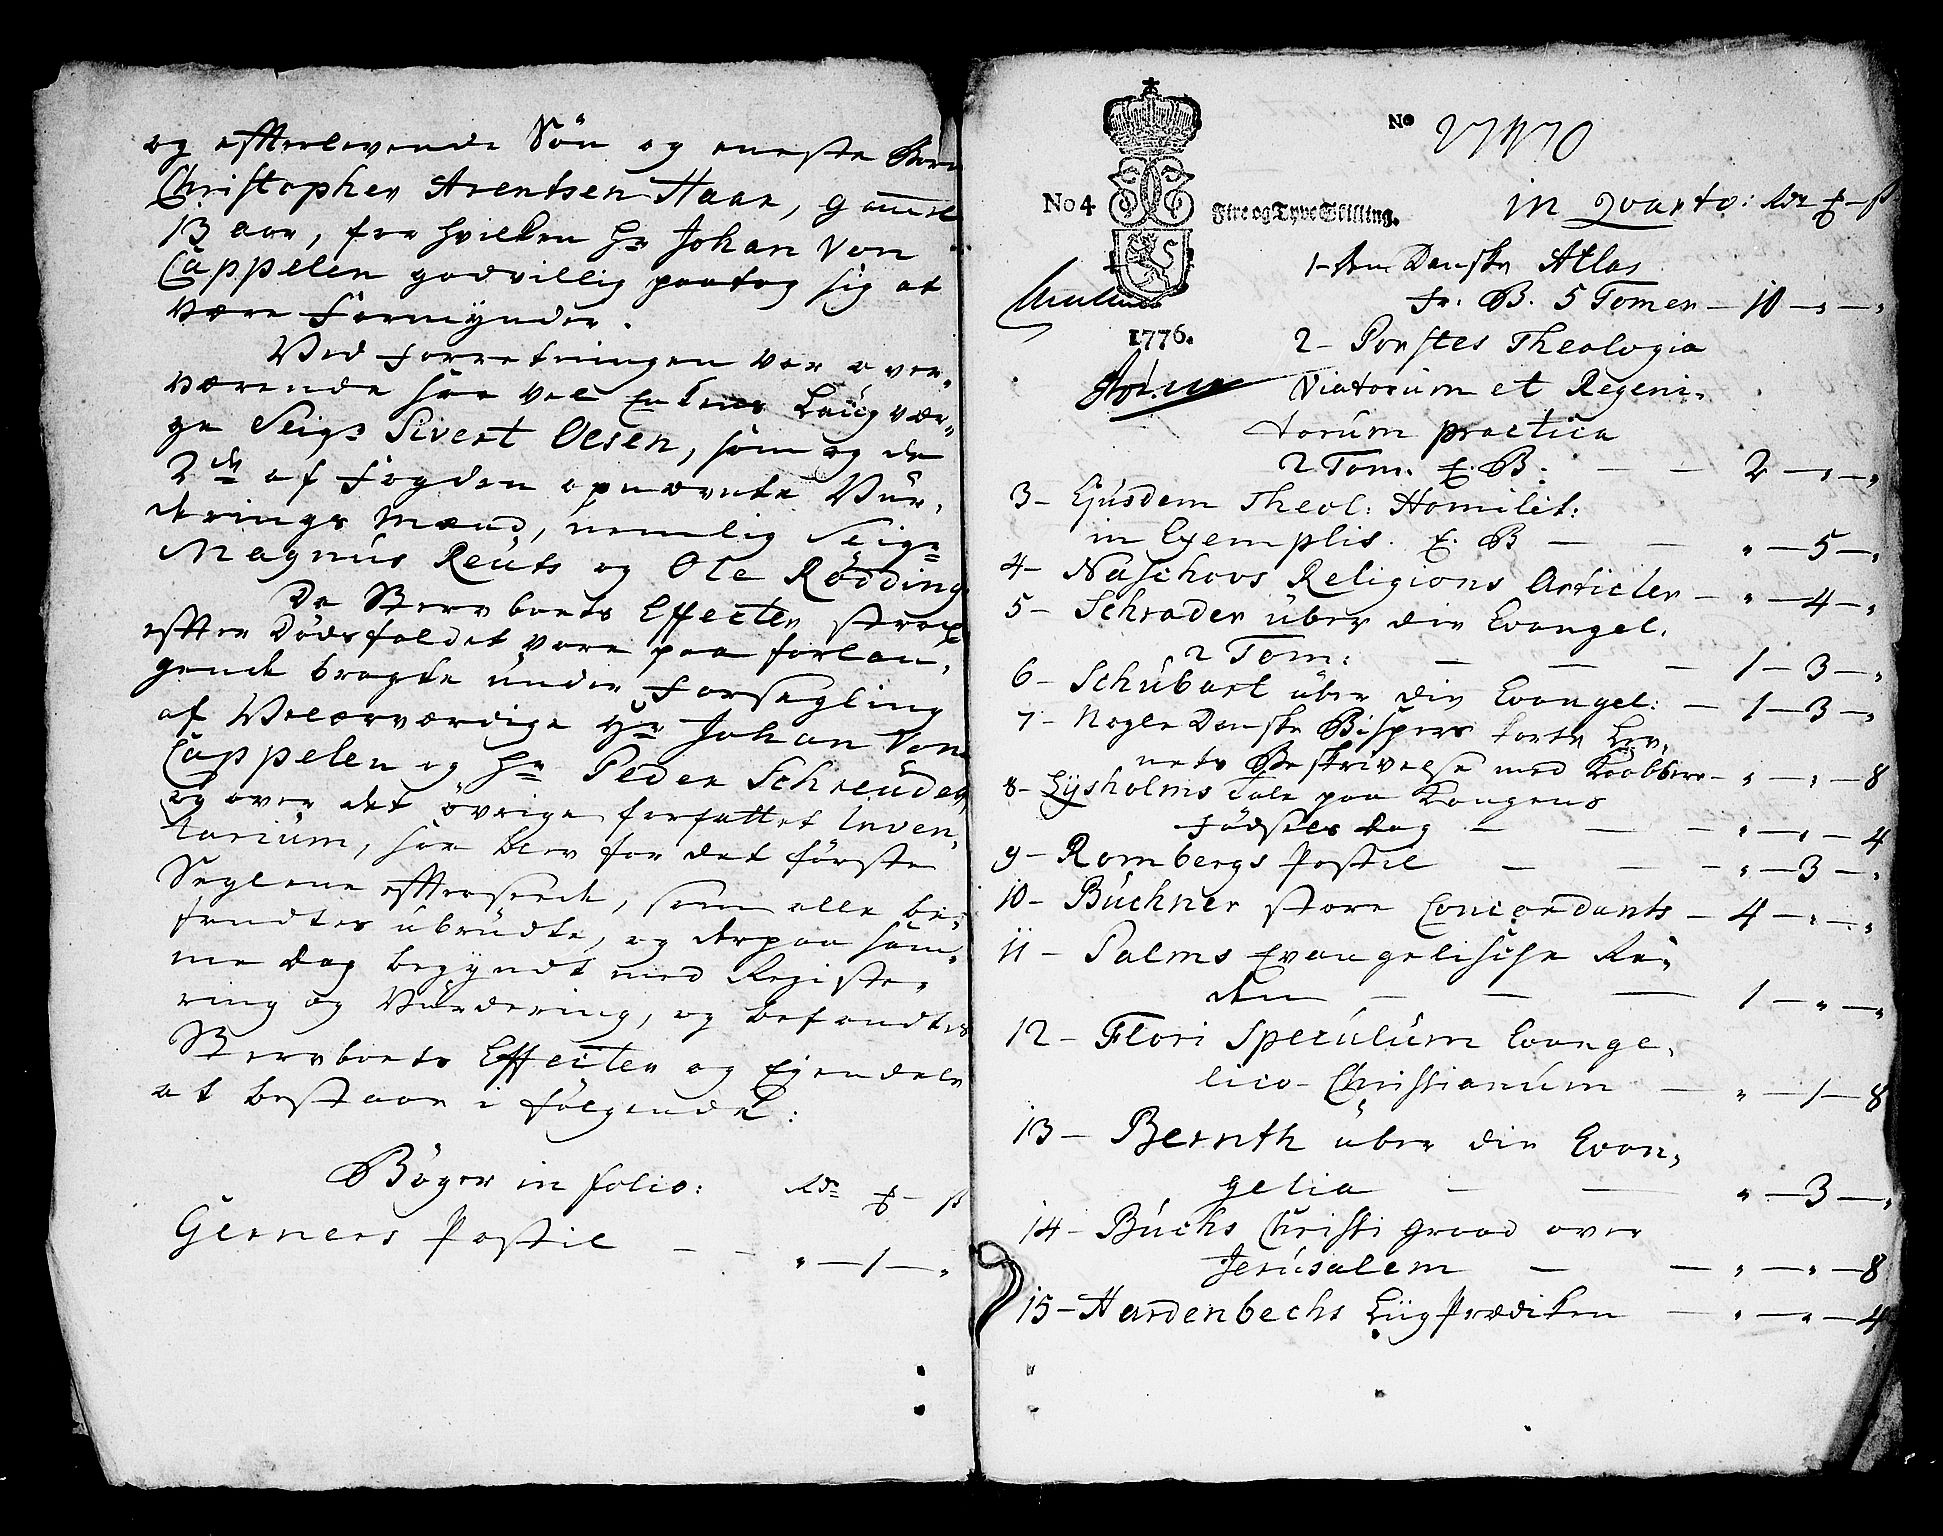 og efterlevende Sön og eneste Barn
Christopher Arentsen Haar, gammel
13 aar, for hvilken Hr Johan Von
Cappelen godvillig paatog sig at
være Formynder.
Ved Forretningen var over-
værende saa vel Enkens Laugvær-
ge Seigr Sivert Olsen, som og de
2de af Fogden opnævnte Vur-
derings Mænd, nemlig Seigr
Magnus Reuts og Ole Rödding
Da Stervboets Effecter strax
efter Dödsfaldet vare paa forlan-
gende bragte under Forsegling
af Velærværdige Hr Johan Von
Cappelen og Hr Peder Schreuder
og over det övrige forfattet Inven-
tarium, saa blev for det förste
Seglene efterseet, som alle be-
fandtes ubrudte, og derpaa sam-
me Dag begyndt med Registe-
ring og Vurdering, og befandtes
Stervboets Effecter og Ejendele
at bestaae i fölgende:
Böger in folio: Rdr ƒ - ß
Gerners Postil - - " - 1 - "
No 27470
No 4 Fire og Tyve Skilling.
1776.
in Qvarto: Rdr ƒ - ß
1 - Den Danske Atlas
Fr: B. 5 Tomer - 10 - " - "
2 - Porstes Theologia
Viatorum et Regeni-
torum practica
2 Tom. E. B: - - 2 - " - "
3 - Ejusdem Theol: Homilet:
in Exemplis. E. B - - " - 5 - "
4 - Naschovs Religions Articler - " - 4 - "
5 - Schrader über die Evangel.
2 Tom: - - - 1 - 3 - "
6 - Schubart über die Evangel: - 1 - 3 - "
7 - Nogle Danske Bispers korte Lev-
nets Beskrivelse med Kaabbere - " - " - 8
8 - Lysholms Tale paa Kongens
Födsels Dag - - - " - " - 4
9 - Rombergs Postil - - - " - 3 - "
10 - Büchner store Concordants - 4 - " - "
11 - Palms Evangelische Re-
den - - - 1 - " - "
12 - Flori Speculum Evange-
lico-Christianum - " - 1 - 8
13 - Bernth über die Evan-
gelia - - " - 3 - "
14 - Buchs Christi Graad over
Jerusalem - - " - " - 8
15 - Hardenbechs Liig Prædiken - " - " - 4